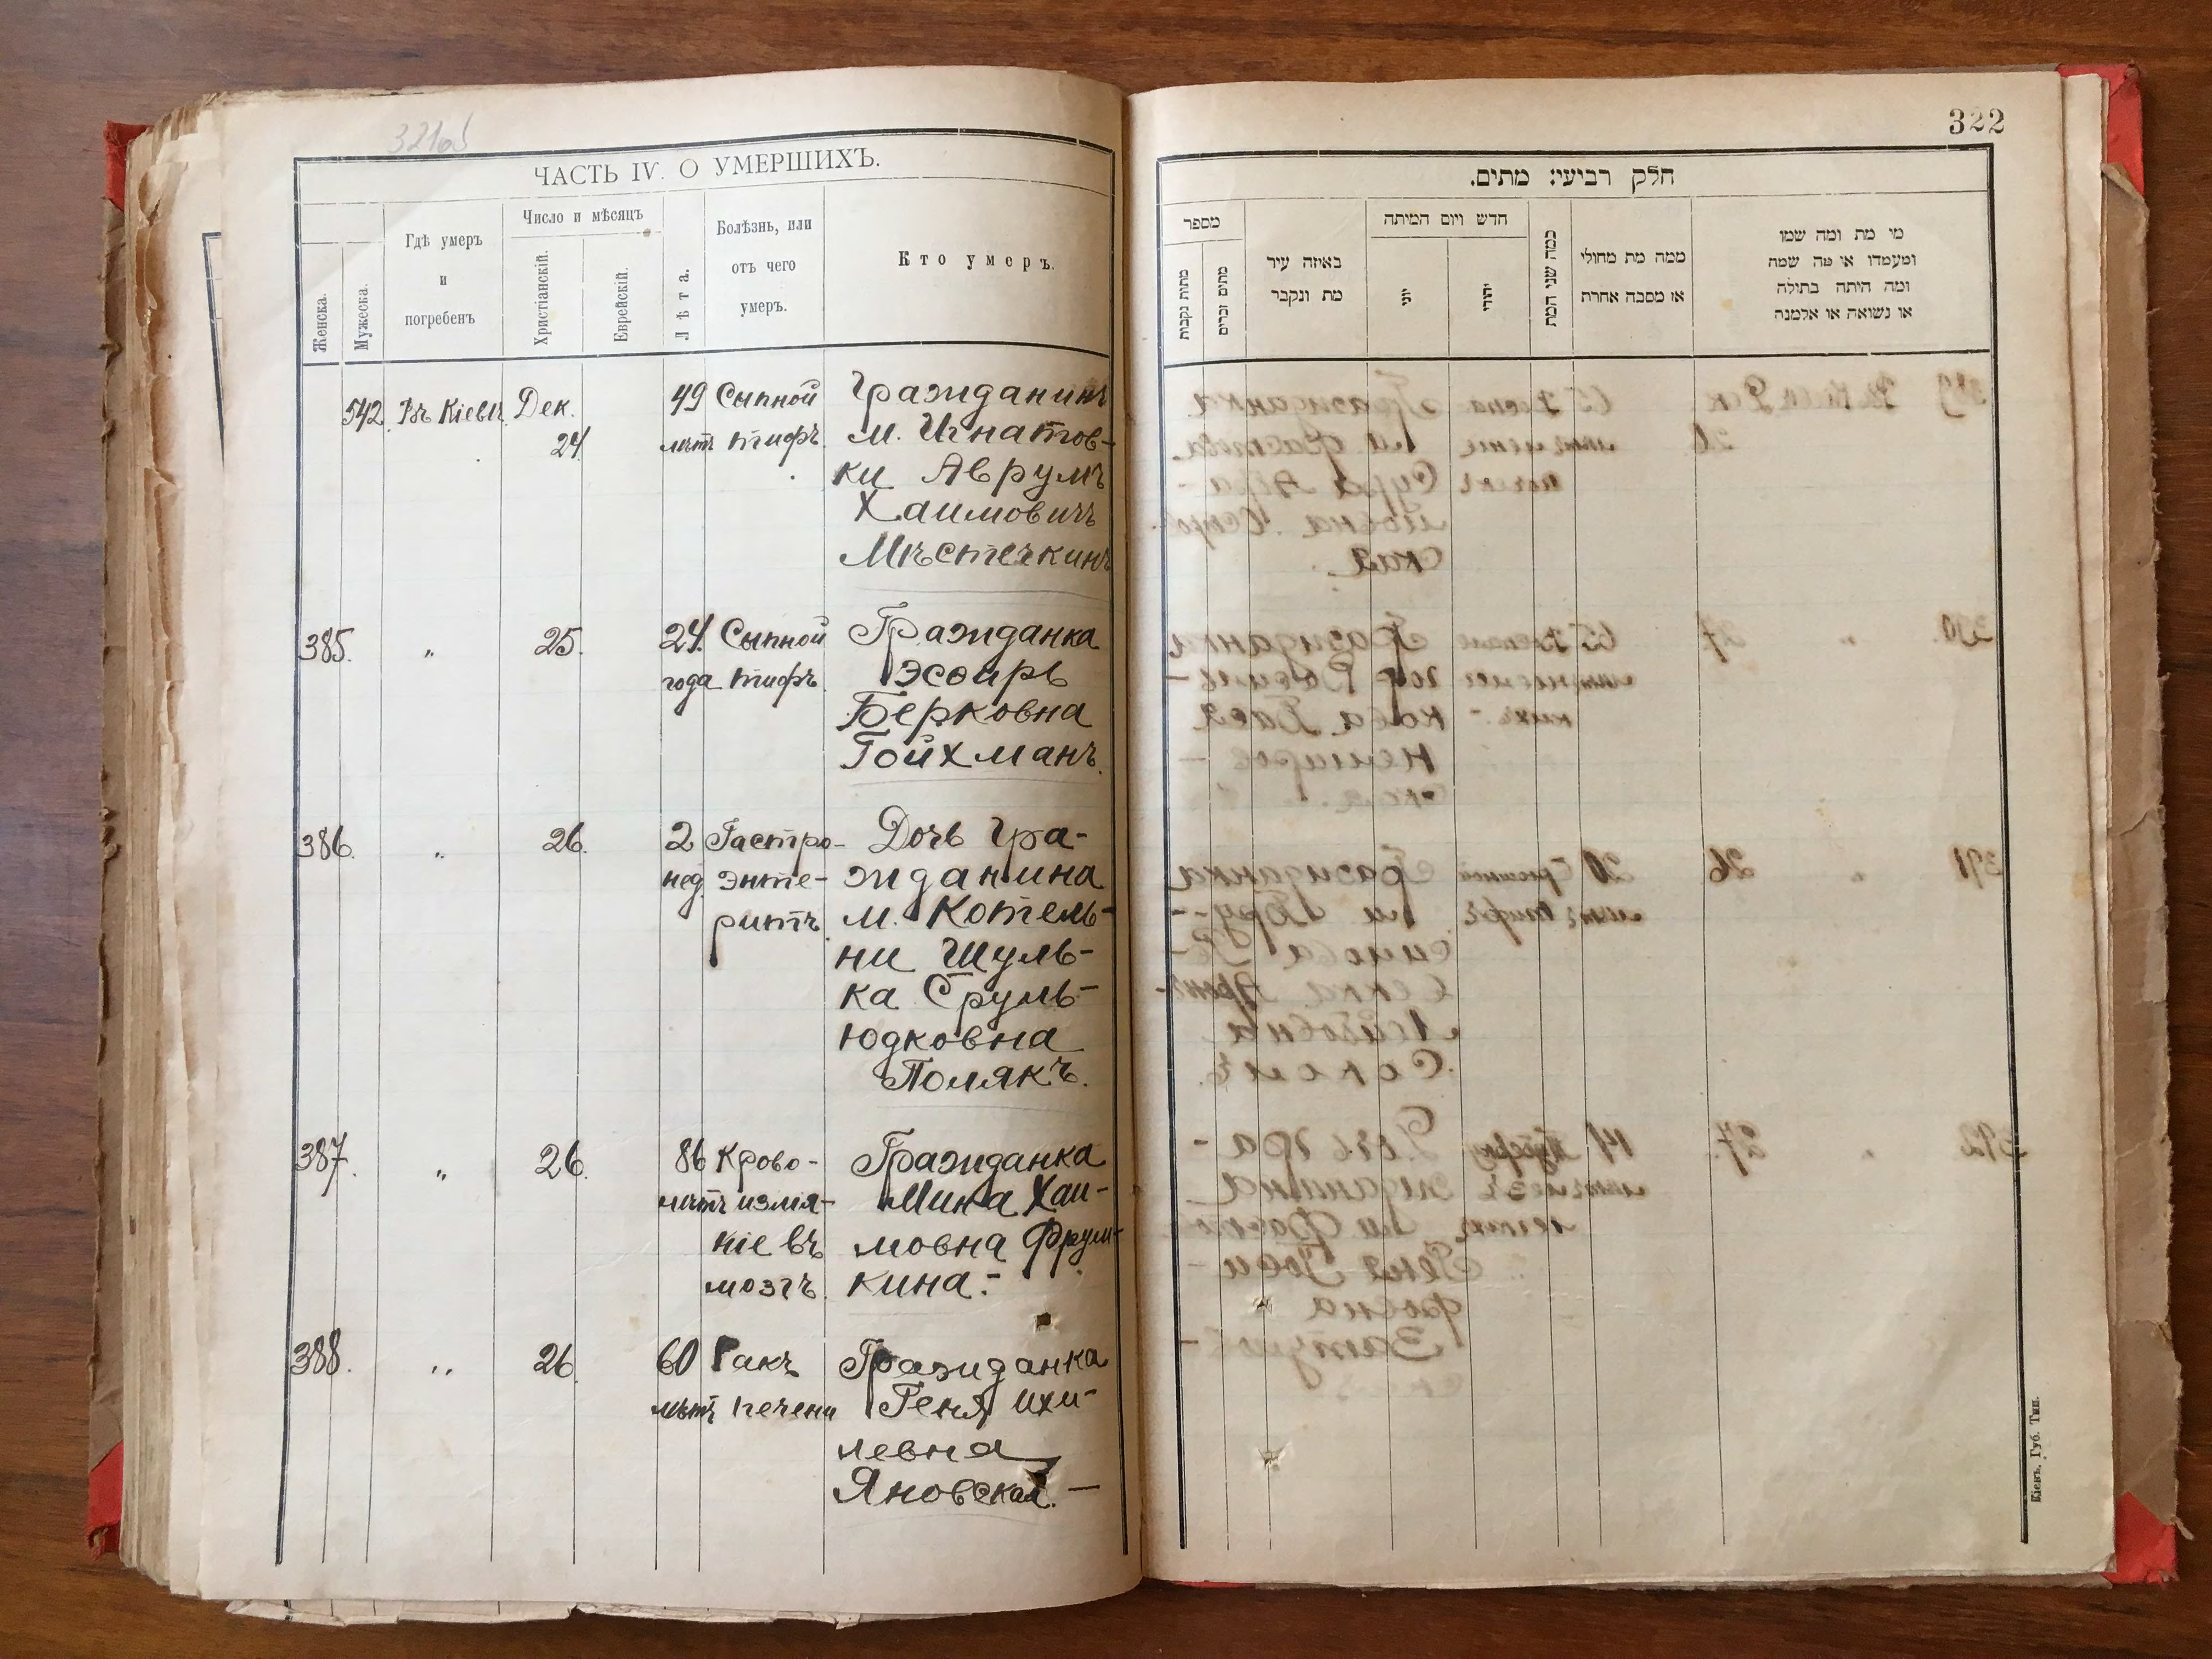 321об
ЧАСТЬ IV. О УМЕРШИХЪ.
Женска.
Мужеска.
Гдѣ умеръ
и
погребенъ
Число и мѣсяцъ
Христіанскій.
Еврейскій.
Лѣта.
Болѣзнь, или
отъ чего
умеръ.
Кто умеръ.
542 Въ Кіевѣ Дек. 49 Сыпной Гражданинъ
24 лѣтъ тифъ. м. Игнатов-
ки Аврумъ
Хаимовичъ
Мѣстечкинъ
385. „ 25. 24. Сыпной Гражданка
года тифъ Эсѳирь
Берковна
Гойхманъ.
386. „ 26. 2 Гастро- Дочь гра-
нед. энте- жданина
ритъ. м. Котель-
ни Шуль-
ка Сруль-
Юдковна
Полякъ.
387. „ 26. 86 Крово- Гражданка
лѣтъ излія- Мина Хаи-
ніе въ мовна Фрум-
мозгъ. кина.-
388. „ 26. 60 Ракъ Гражданка
лѣтъ печени Геня Ихи-
левна
Яновская. —
322
חלק רביעי: מתים.
מספר
מתות נקבות
מתים זכרים
באיזה עיר
מת ונקבר
חדש ויום המיתה
יוני
יהודי
כמה שני המת
ממה מת מחולי
או מסבה אחרת
מי מת ומה שמו
ומעמדו או מה שמה
ומה היתה בתולה
או נשואה או אלמנה
Кіевъ, Губ. Тип.